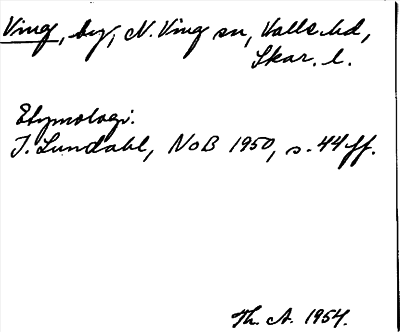 Ving, by, N. Ving sn, Valle hd,
Skar. l.
Etymologi.
I. Lundahl, NoB 1950, s. 44ff.
Th. A. 1954.